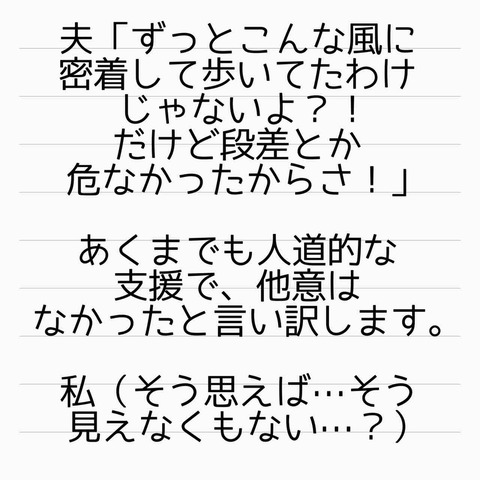 夫「ずっとこんな風に
密着して歩いてたわけ
じゃないよ？！
だけど段差とか
危なかったからさ！」
あくまでも人道的な
支援で、他意は
なかったと言い訳します。
私（そう思えば…そう
見えなくもない…？）